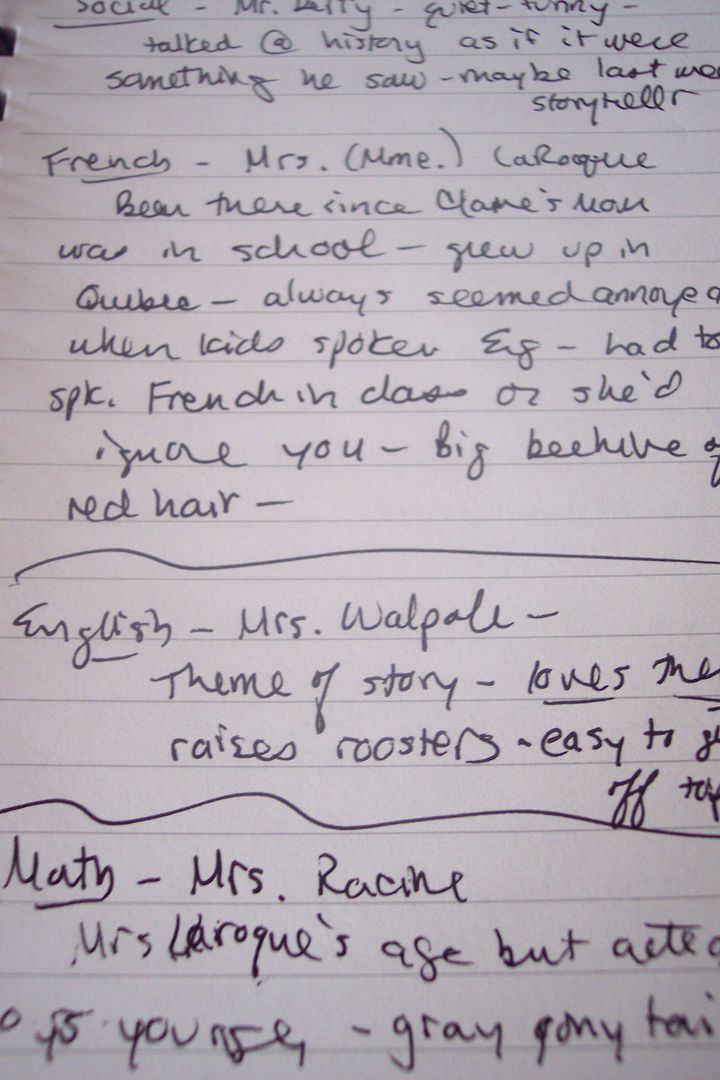 Social - Mr. - quiet-funny -
talked @ history as if it were
something he saw - maybe last
storyteller
French - Mrs. (Mme.) LaRoque
Been there since Claire's Mom
was in school - grew up in
Quebec - always seemed annoyed
when kids spoken Eng - had to
spk. French in class or she'd
ignore you - Big beehive of
red hair -
English - Mrs. Walpole -
Theme of story - loves
raises roosters - easy to
off
Math - Mrs. Racine
Mrs Laroque's age but acted
younger, - gray pony